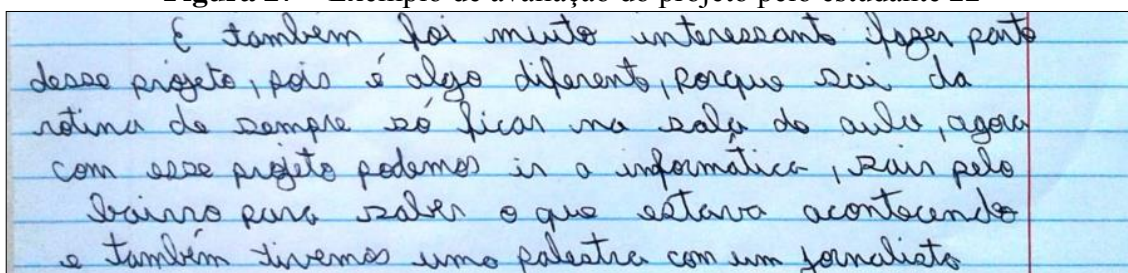 Figura 27 – Exemplo de avaliação do projeto pelo estudante 22
E tambem foi muito interessante fazer parte
desse projeto, pois é algo diferente, porque sai da
rotina de sempre só ficar na sala de aula, agora
com esse projeto podemos ir a informática, sair pelo
bairro para saber o que estava acontecendo
e também tivemos uma palestra com um jornalista